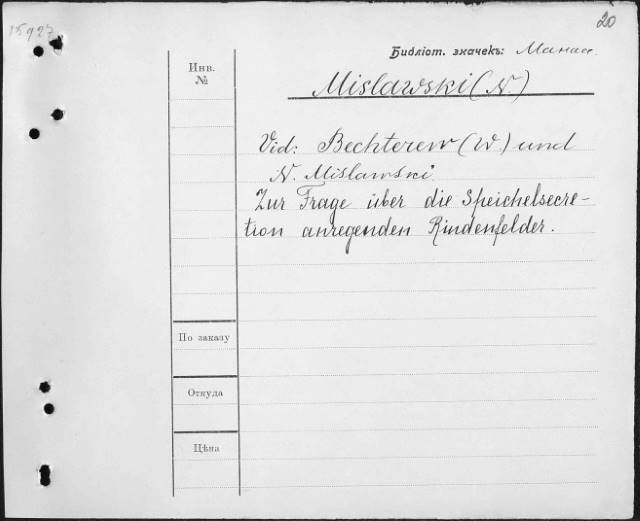 15927
20
Библіот. значекъ: Манаа.
Инв.
№
Mislawski (N.)
Vid: Bechterew (W.) und
N. Mislawski
Zur Frage über die Speichelsecre-
tion anregenden Rindenfelder.
По заказу
Откуда
Цѣна